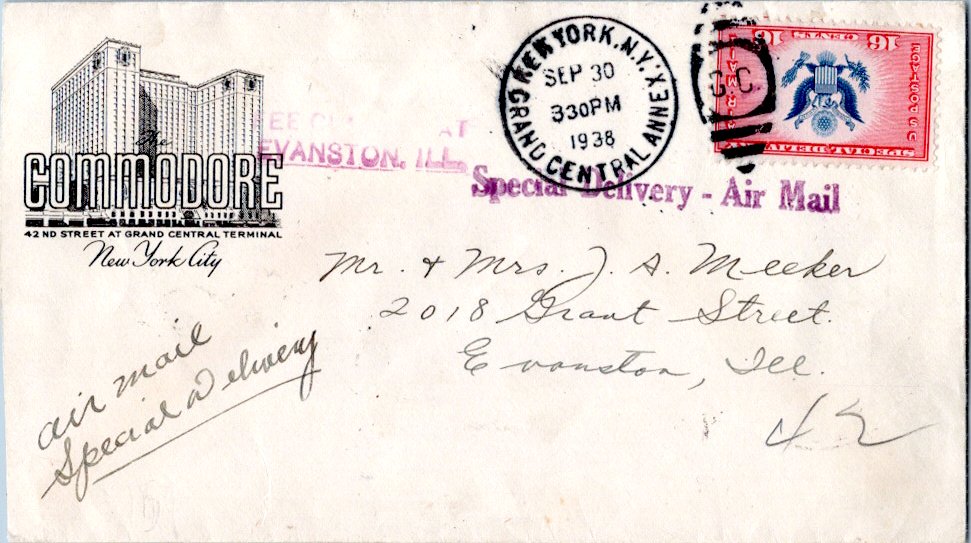 The
COMMODORE
42ND STREET AT GRAND CENTRAL TERMINAL
New York City
NEW YORK, N.Y.
GRAND CENTRAL ANNEX
SEP 30
330PM
1938
G.C.
16 CENTS 16
SPECIAL DELIVERY
FEE CL AT
EVANSTON, ILL.
Special Delivery - Air Mail
Mr. & Mrs. J. A. Meeker
2018 Grant Street.
Evanston, Ill.
air mail
Special Delivery